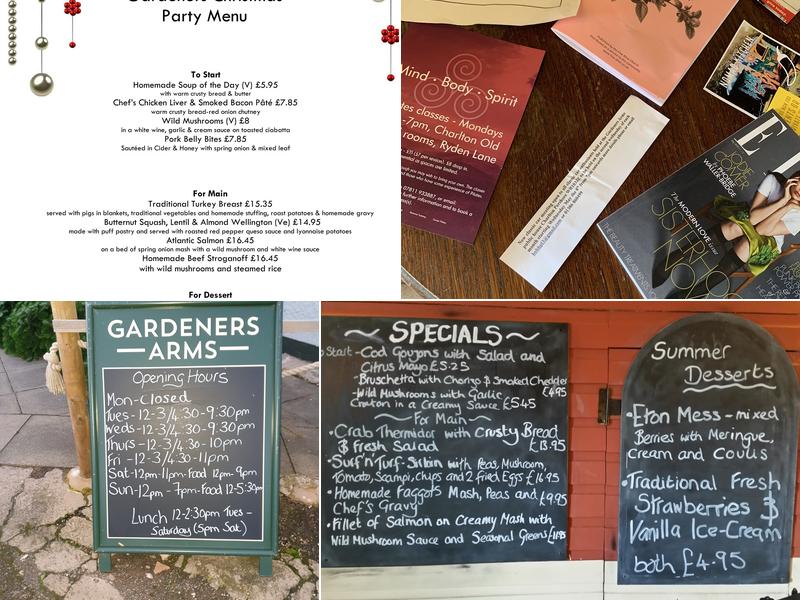 Gardeners Christmas
Party Menu
To Start
Homemade Soup of the Day (V) £5.95
with warm crusty bread & butter
Chef's Chicken Liver & Smoked Bacon Pâté £7.85
warm crusty bread-red onion chutney
Wild Mushrooms (V) £8
in a white wine, garlic & cream sauce on toasted ciabatta
Pork Belly Bites £7.85
Sautéed in Cider & Honey with spring onion & mixed leaf
For Main
Traditional Turkey Breast £15.35
served with pigs in blankets, traditional vegetables and homemade stuffing, roast potatoes & homemade gravy
Butternut Squash, Lentil & Almond Wellington (Ve) £14.95
made with puff pastry and served with roasted red pepper queso sauce and lyonnaise potatoes
Atlantic Salmon £16.45
on a bed of spring onion mash with a wild mushroom and white wine sauce
Homemade Beef Stroganoff £16.45
with wild mushrooms and steamed rice
For Dessert
Mind · Body · Spirit
classes - Mondays
-7pm, Charlton Old
rooms, Ryden Lane
JODIE
COMER
by PHOEBE
WALLER-BRIDGE
7th MODERN LOVE
GARDENERS
ARMS
Opening Hours
Mon-Closed
Tues-12-3/4:30-9:30pm
Weds-12-3/4:30-9:30pm
Thurs-12-3/4:30-10pm
Fri-12-3/4:30-11pm
Sat-12pm-11pm-Food 12pm-9pm
Sun-12pm-7pm-Food 12-5:30pm
Lunch 12-2:30pm Tues-
Saturday (5pm Sat)
~SPECIALS~
Start-Cod Goujons with Salad and
Citrus Mayo £5.25
-Bruschetta with Chorizo & Smoked Cheddar
£4.95
-Wild Mushrooms with Garlic
Crouton in a Creamy Sauce £5.45
~For Main~
•Crab Thermidor with Crusty Bread
& Fresh Salad £13.95
•Surf'n'Turf-Sirloin with Peas, Mushroom,
Tomato, Scampi, Chips and 2 fried Eggs £16.95
•Homemade Faggots Mash, Peas and £9.95
Chef's Gravy
•Fillet of Salmon on Creamy Mash with
Wild Mushroom Sauce and Seasonal Greens £11.95
Summer
Desserts
•Eton Mess-mixed
Berries with Meringue,
Cream and Coulis
•Traditional Fresh
Strawberries &
Vanilla Ice-Cream
both £4.95